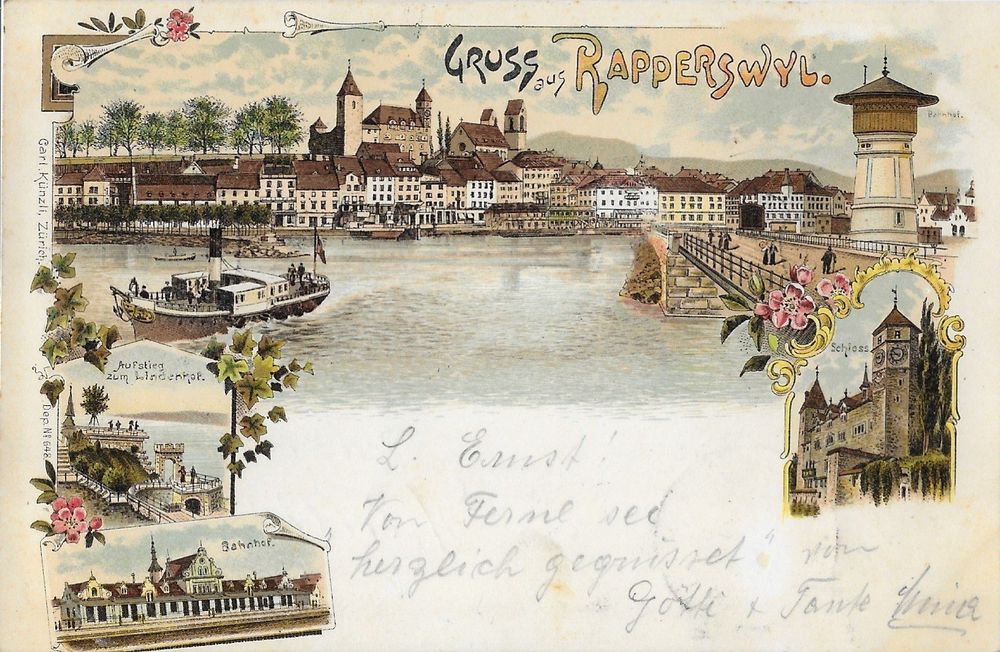 GRUSS aus RAPPERSWYL.
Bahnhof.
Carl Künzli, Zürich
Dep. № 648.
Schloss
Aufstieg
zum Lindenhof.
Bahnhof.
L. Ernst!
"Von Ferne sei
herzlich gegrüsset" von
Götti & Tante